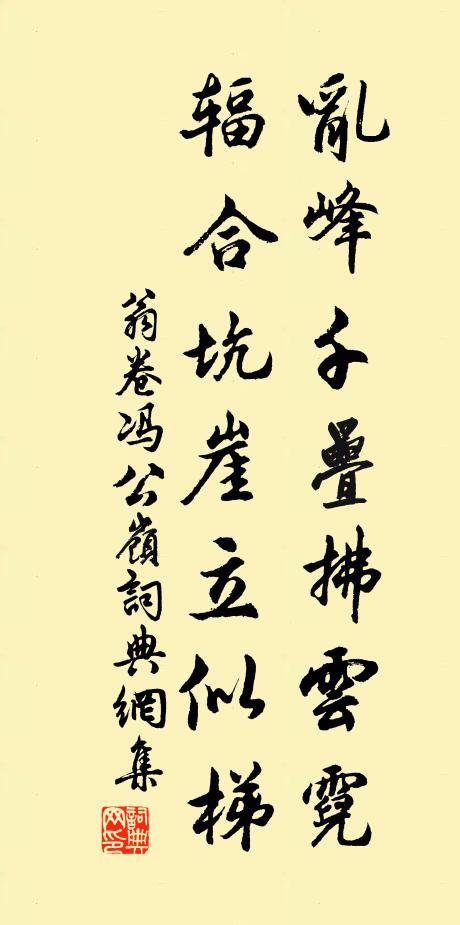 亂峰千疊拂雲霓
辐合坑崖立似梯
翁卷冯公嶺詞典網集
詞典网印